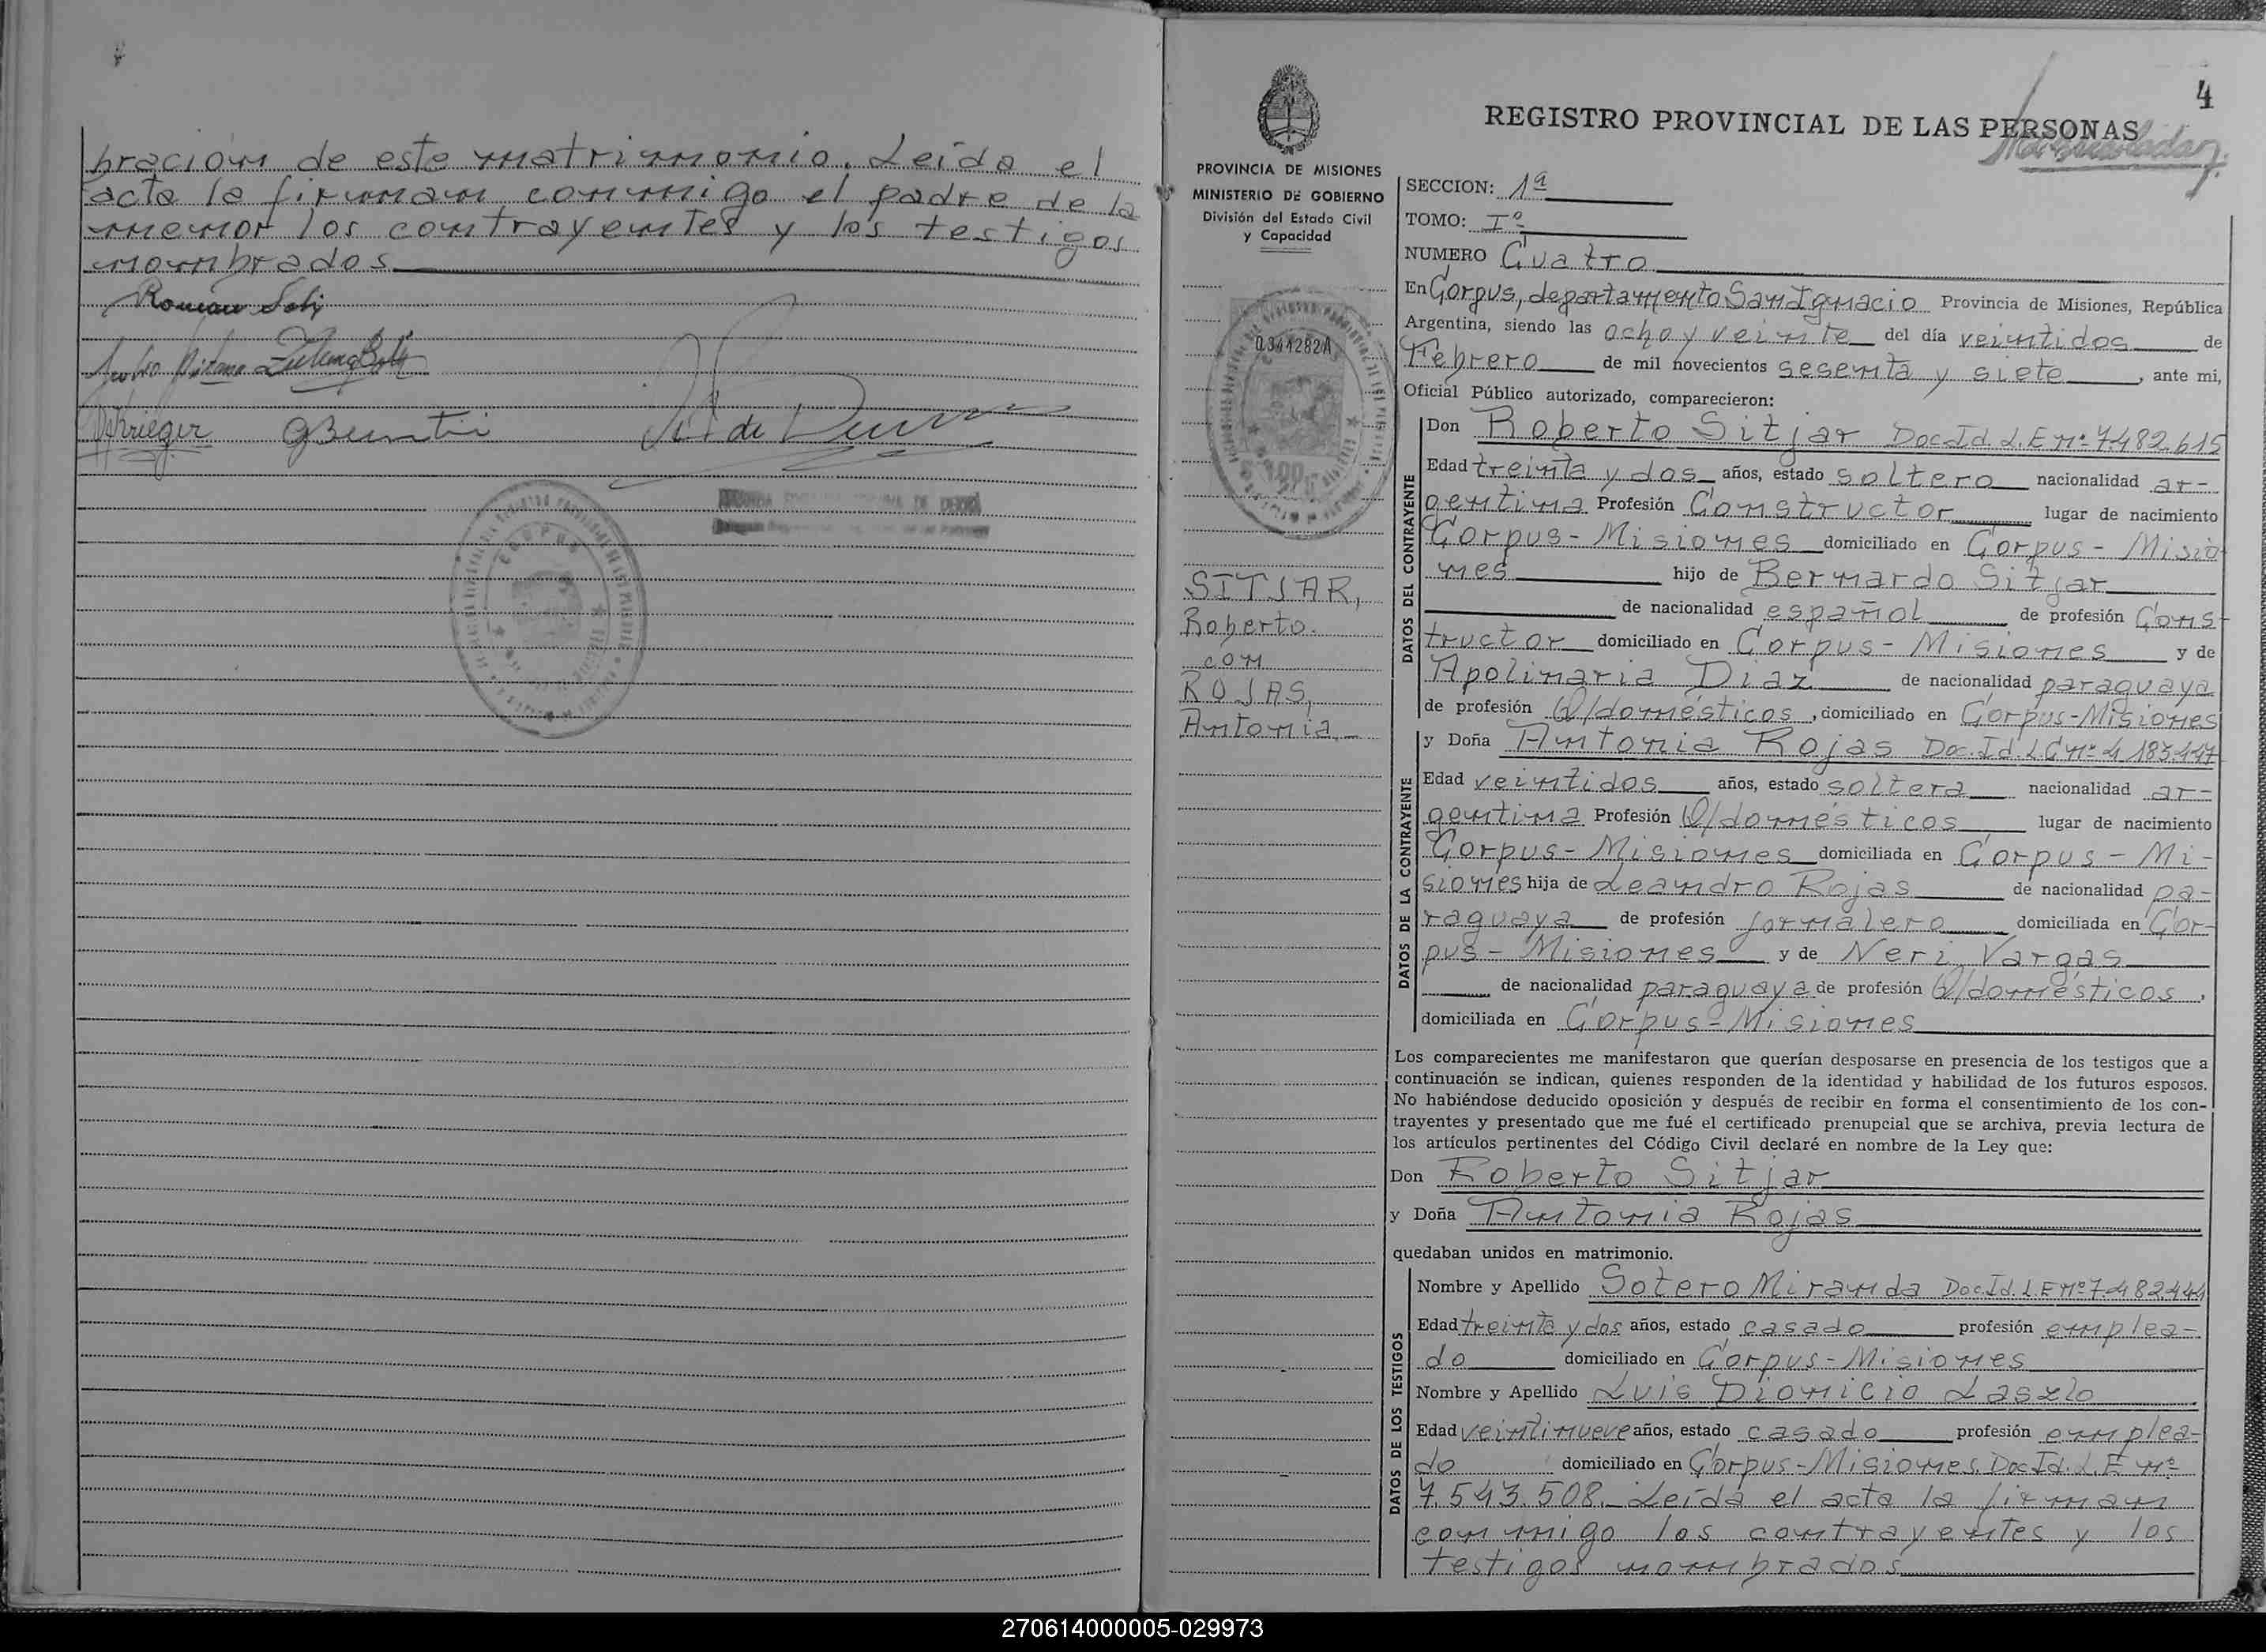 bración de este matrimonio. Leída el
acta la firman conmigo el padre de la
menor los contrayentes y los testigos
nombrados
Roman
Krieger
CORPUS
4
REGISTRO PROVINCIAL DE LAS PERSONAS
PROVINCIA DE MISIONES
MINISTERIO DE GOBIERNO
División del Estado Civil
y Capacidad
0344282A
SITJAR,
Roberto.
con
ROJAS,
Antonia.-
SECCION: 1ª
TOMO: Iº
NUMERO Cuatro
En Corpus, departamento San Ignacio Provincia de Misiones, República
Argentina, siendo las ocho y veinte del día veintidos de
Febrero de mil novecientos sesenta y siete, ante mi,
Oficial Público autorizado, comparecieron:
DATOS DEL CONTRAYENTE
Don Roberto Sitjar Doc.Id. L.E nº 7.482.615
Edad treinta y dos años, estado soltero nacionalidad ar-
gentina Profesión Constructor lugar de nacimiento
Corpus - Misiones domiciliado en Corpus - Misio
nes hijo de Bernardo Sitjar
de nacionalidad español de profesión Cons
tructor domiciliado en Corpus - Misiones y de
Apolinaria Diaz de nacionalidad paraguaya
de profesión Q/domésticos, domiciliado en Corpus-Misiones
DATOS DE LA CONTRAYENTE
y Doña Antonia Rojas Doc.Id. L.C nº 4.183.447
Edad veintidos años, estado soltera nacionalidad ar-
gentina Profesión Q/domésticos lugar de nacimiento
Corpus - Misiones domiciliada en Corpus - Mi-
siones hija de Leandro Rojas de nacionalidad pa-
raguaya de profesión jornalero domiciliada en Cor-
pus - Misiones y de Neri Vargas
de nacionalidad paraguaya de profesión Q/domésticos,
domiciliada en Corpus - Misiones
Los comparecientes me manifestaron que querían desposarse en presencia de los testigos que a
continuación se indican, quienes responden de la identidad y habilidad de los futuros esposos.
No habiéndose deducido oposición y después de recibir en forma el consentimiento de los con-
trayentes y presentado que me fué el certificado prenupcial que se archiva, previa lectura de
los artículos pertinentes del Código Civil declaré en nombre de la Ley que:
Don Roberto Sitjar
y Doña Antonia Rojas
quedaban unidos en matrimonio.
DATOS DE LOS TESTIGOS
Nombre y Apellido Sotero Miranda Doc.Id. L.E nº 7.482444
Edad treinta y dos años, estado casado profesión emplea-
do domiciliado en Corpus - Misiones
Nombre y Apellido Luis Dionicio Laszlo
Edad veintinueve años, estado casado profesión emplea-
do domiciliado en Corpus-Misiones. Doc.Id. L.E nº
7.543.508.- Leída el acta la firman
conmigo los contrayentes y los
testigos nombrados
270614000005-029973